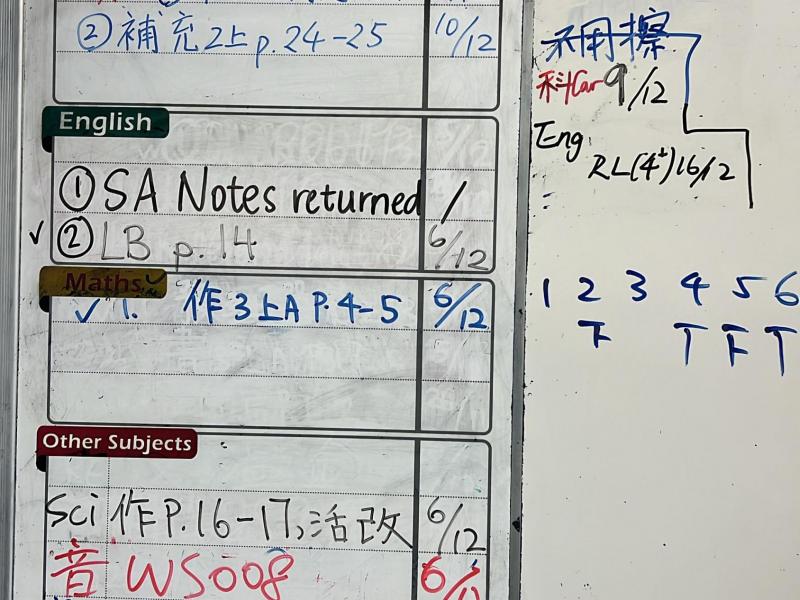 ② 補充2上 p.24-25 10/12
English
① SA Notes returned /
✓ ② LB p.14 6/12
Maths ✓
✓ 1. 作3上A P.4-5 6/12
Other Subjects
Sci 作P.16-17,活改 6/12
音 WS008 6/1
不用擦
科Car 9/12
Eng
RL(4*) 16/12
1 2 3 4 5 6
F T F T